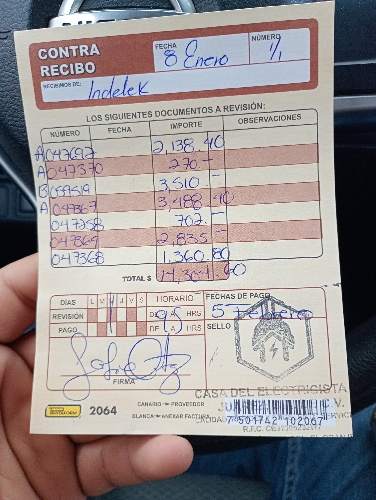 CONTRA RECIBO
FECHA 8 Enero
NÚMERO 1/1
RECIBIMOS DE: Indelek
LOS SIGUIENTES DOCUMENTOS A REVISIÓN:
NÚMERO FECHA IMPORTE OBSERVACIONES
A 047692 2,138.40
A 047370 270.-
B 099519 3,510.-
A 047367 3,488.40
047258 702.-
047369 2,835.-
047368 1,360.80
TOTAL $ 14,304.60
DÍAS L M M J V S HORARIO FECHAS DE PAGO
REVISIÓN DE 9 A 5 HRS 5 Febrero
PAGO DE A HRS SELLO
FIRMA
CASA DEL ELECTRICISTA
2064
CANARIO PROVEEDOR
BLANCA ANEXAR FACTURA
7 501742 102067